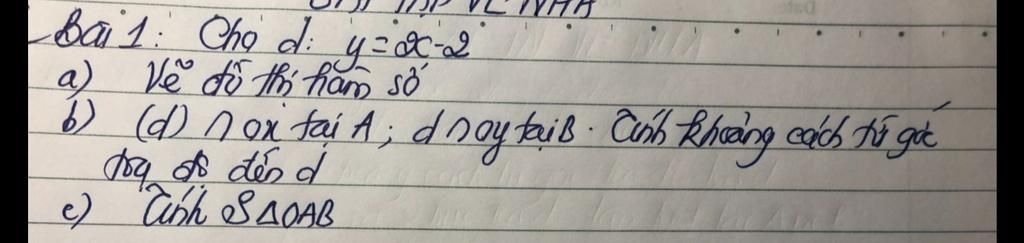 BÀI TẬP VỀ NHÀ
Bài 1: Cho d: y = x - 2
a) Vẽ đồ thị hàm số
b) (d) ∩ ox tại A; d ∩ oy tại B. Tính khoảng cách từ gốc
tọa độ đến d
c) Tính S△OAB